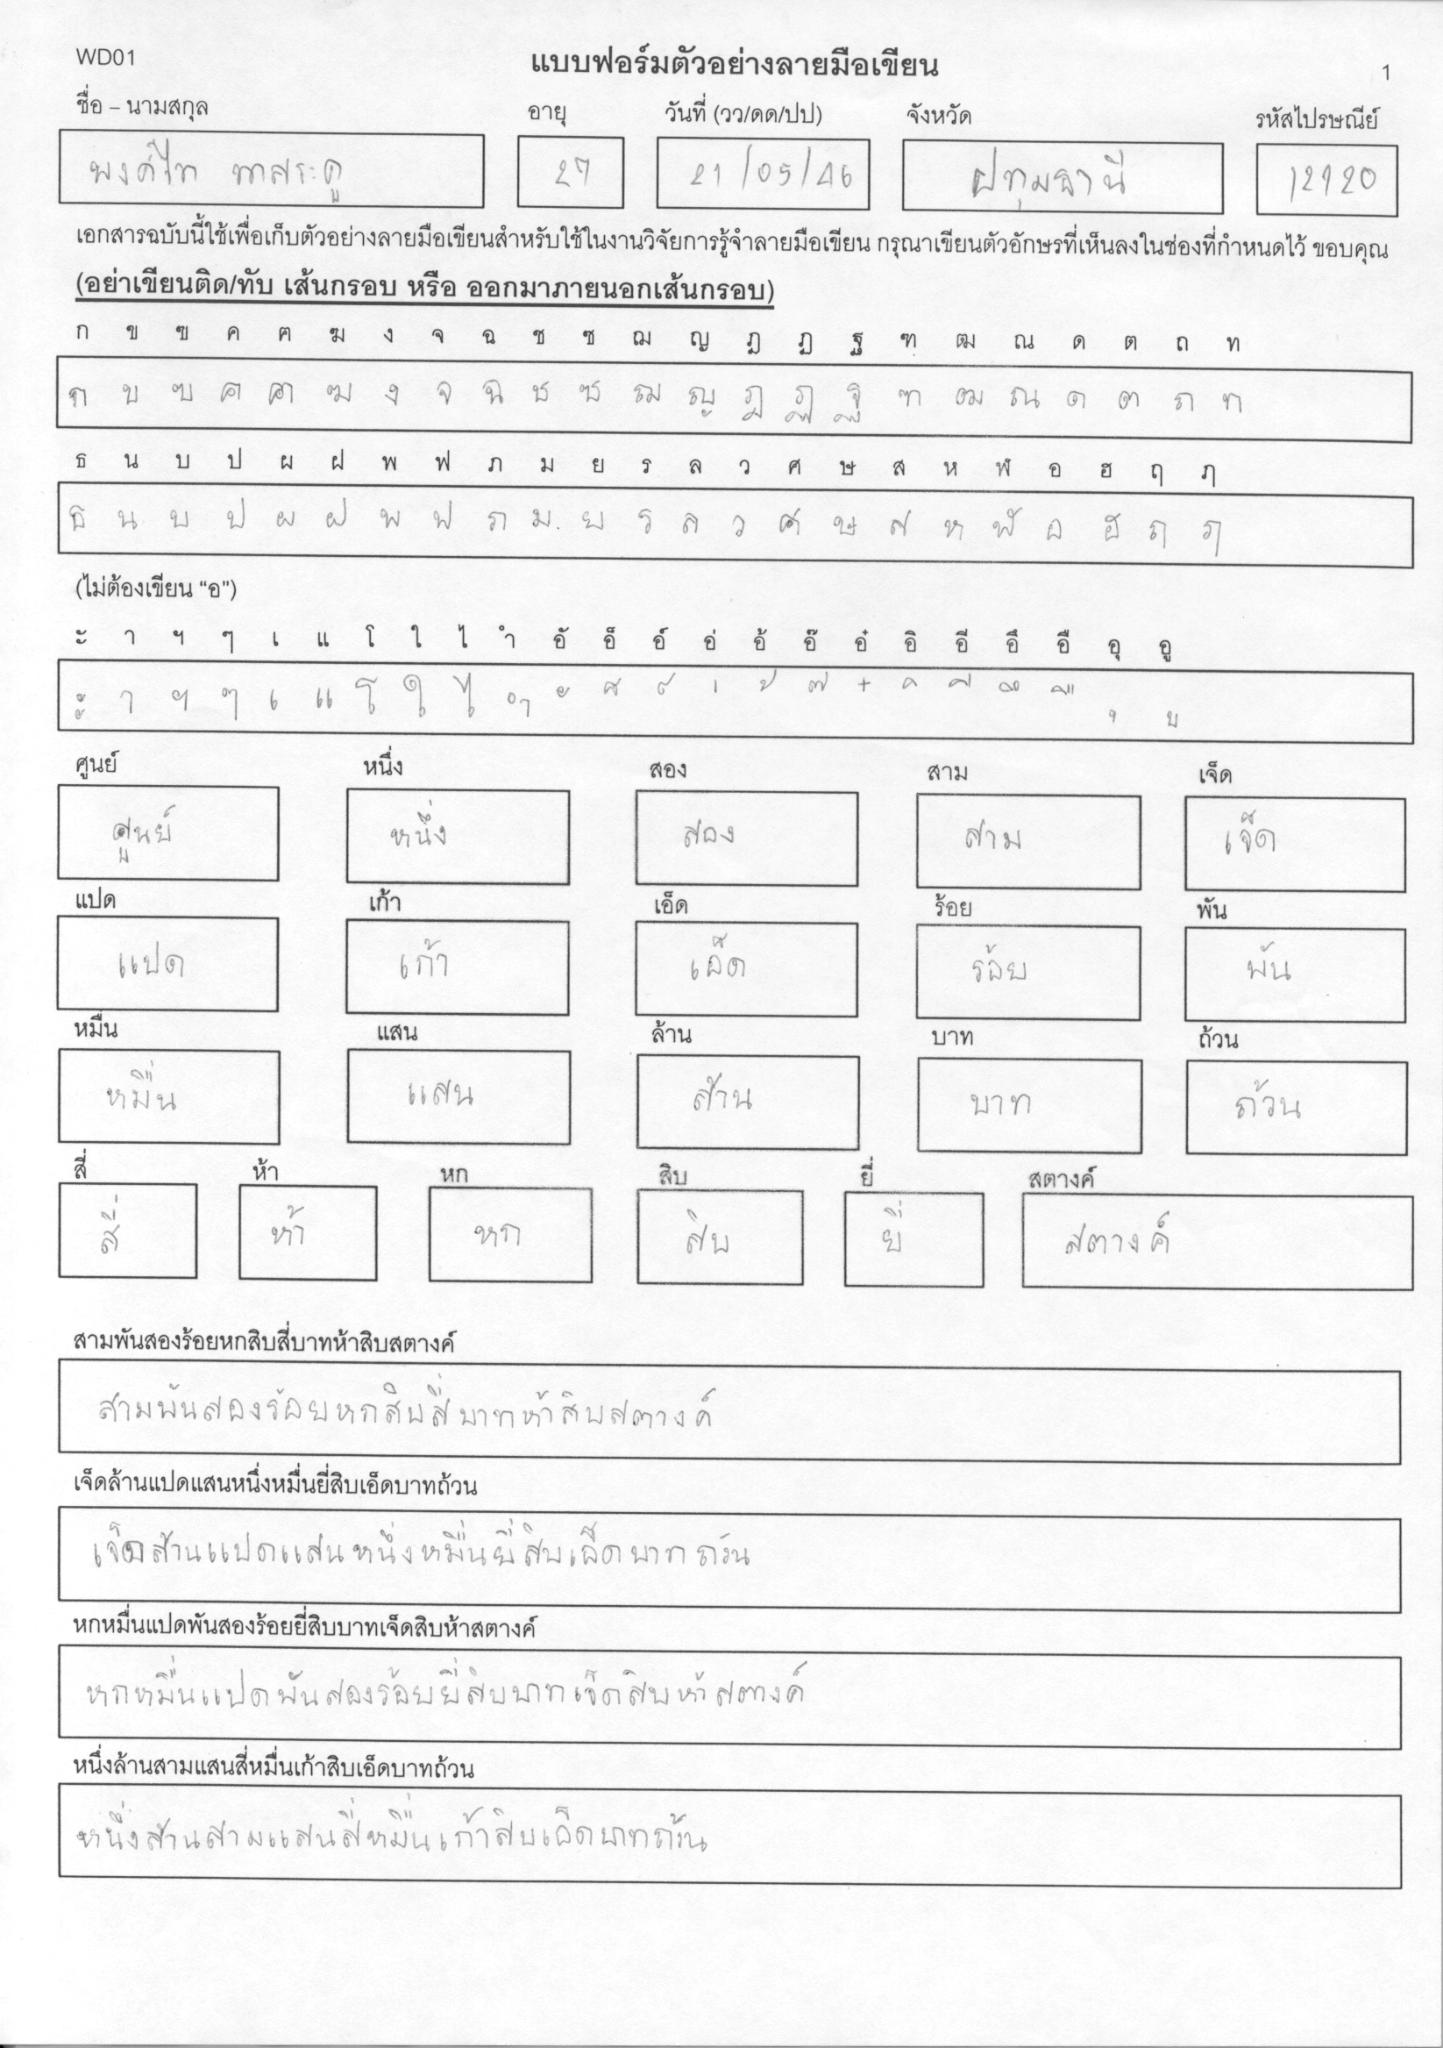 WD01
แบบฟอร์มตัวอย่างลายมือเขียน
1
ชื่อ – นามสกุล อายุ วันที่ (วว/ดด/ปป) จังหวัด รหัสไปรษณีย์
พงค์ไท ทาสระคู 27 21/05/46 ปทุมธานี 12120
เอกสารฉบับนี้ใช้เพื่อเก็บตัวอย่างลายมือเขียนสำหรับใช้ในงานวิจัยการรู้จำลายมือเขียน กรุณาเขียนตัวอักษรที่เห็นลงในช่องที่กำหนดไว้ ขอบคุณ
(อย่าเขียนติด/ทับ เส้นกรอบ หรือ ออกมาภายนอกเส้นกรอบ)
ก ข ฃ ค ฅ ฆ ง จ ฉ ช ซ ฌ ญ ฎ ฏ ฐ ฑ ฒ ณ ด ต ถ ท
ก ข ฃ ค ฅ ฆ ง จ ฉ ช ซ ฌ ญ ฎ ฏ ฐ ฑ ฒ ณ ด ต ถ ท
ธ น บ ป ผ ฝ พ ฟ ภ ม ย ร ล ว ศ ษ ส ห ฬ อ ฮ ฤ ฦ
ธ น บ ป ผ ฝ พ ฟ ภ ม. ย ร ล ว ศ ษ ส ห ฬ อ ฮ ฤ ฦ
(ไม่ต้องเขียน “อ”)
ะ า ฯ ๆ เ แ โ ใ ไ ำ อั อ็ อ์ อ่ อ้ อ๊ อ๋ อิ อี อึ อื อุ อู
ะ า ฯ ๆ เ แ โ ใ ไ ำ ั ็ ์ ่ ้ ๊ ๋ ิ ี ึ ื ุ ู
ศูนย์ หนึ่ง สอง สาม เจ็ด
ศูนย์ หนึ่ง สอง สาม เจ็ด
แปด เก้า เอ็ด ร้อย พัน
แปด เก้า เอ็ด ร้อย พัน
หมื่น แสน ล้าน บาท ถ้วน
หมื่น แสน ล้าน บาท ถ้วน
สี่ ห้า หก สิบ ยี่ สตางค์
สี่ ห้า หก สิบ ยี่ สตางค์
สามพันสองร้อยหกสิบสี่บาทห้าสิบสตางค์
สามพันสองร้อยหกสิบสี่บาทห้าสิบสตางค์
เจ็ดล้านแปดแสนหนึ่งหมื่นยี่สิบเอ็ดบาทถ้วน
เจ็ดล้านแปดแสนหนึ่งหมื่นยี่สิบเอ็ดบาทถ้วน
หกหมื่นแปดพันสองร้อยยี่สิบบาทเจ็ดสิบห้าสตางค์
หกหมื่นแปดพันสองร้อยยี่สิบบาทเจ็ดสิบห้าสตางค์
หนึ่งล้านสามแสนสี่หมื่นเก้าสิบเอ็ดบาทถ้วน
หนึ่งล้านสามแสนสี่หมื่นเก้าสิบเอ็ดบาทถ้วน